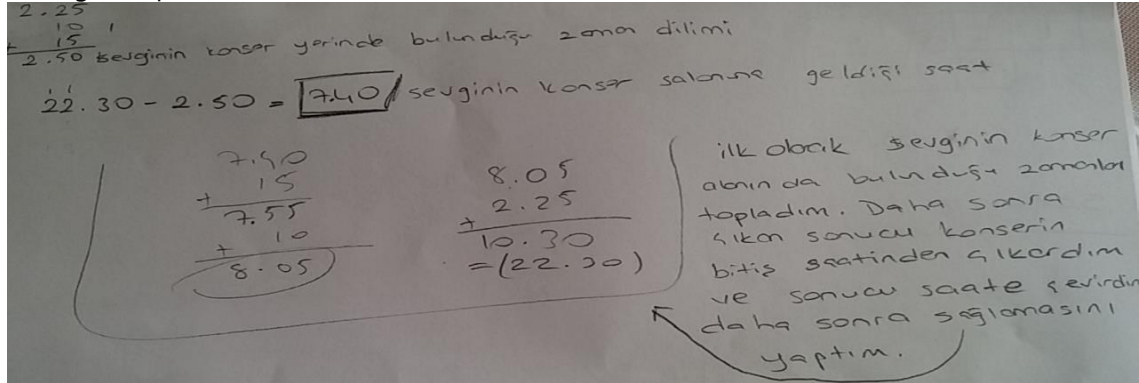 2.25
10
+ 15
2.50 sevginin konser yerinde bulunduğu zaman dilimi
22.30 - 2.50 = 7.40 sevginin konser salonuna geldiği saat
7.40
+ 15
7.55
+ 10
8.05
8.05
+ 2.25
10.30
=(22.30)
ilk olarak sevginin konser
alanında bulunduğu zamanları
topladım. Daha sonra
çıkan sonucu konserin
bitiş saatinden çıkardım
ve sonucu saate çevirdim
daha sonra sağlamasını
yaptım.